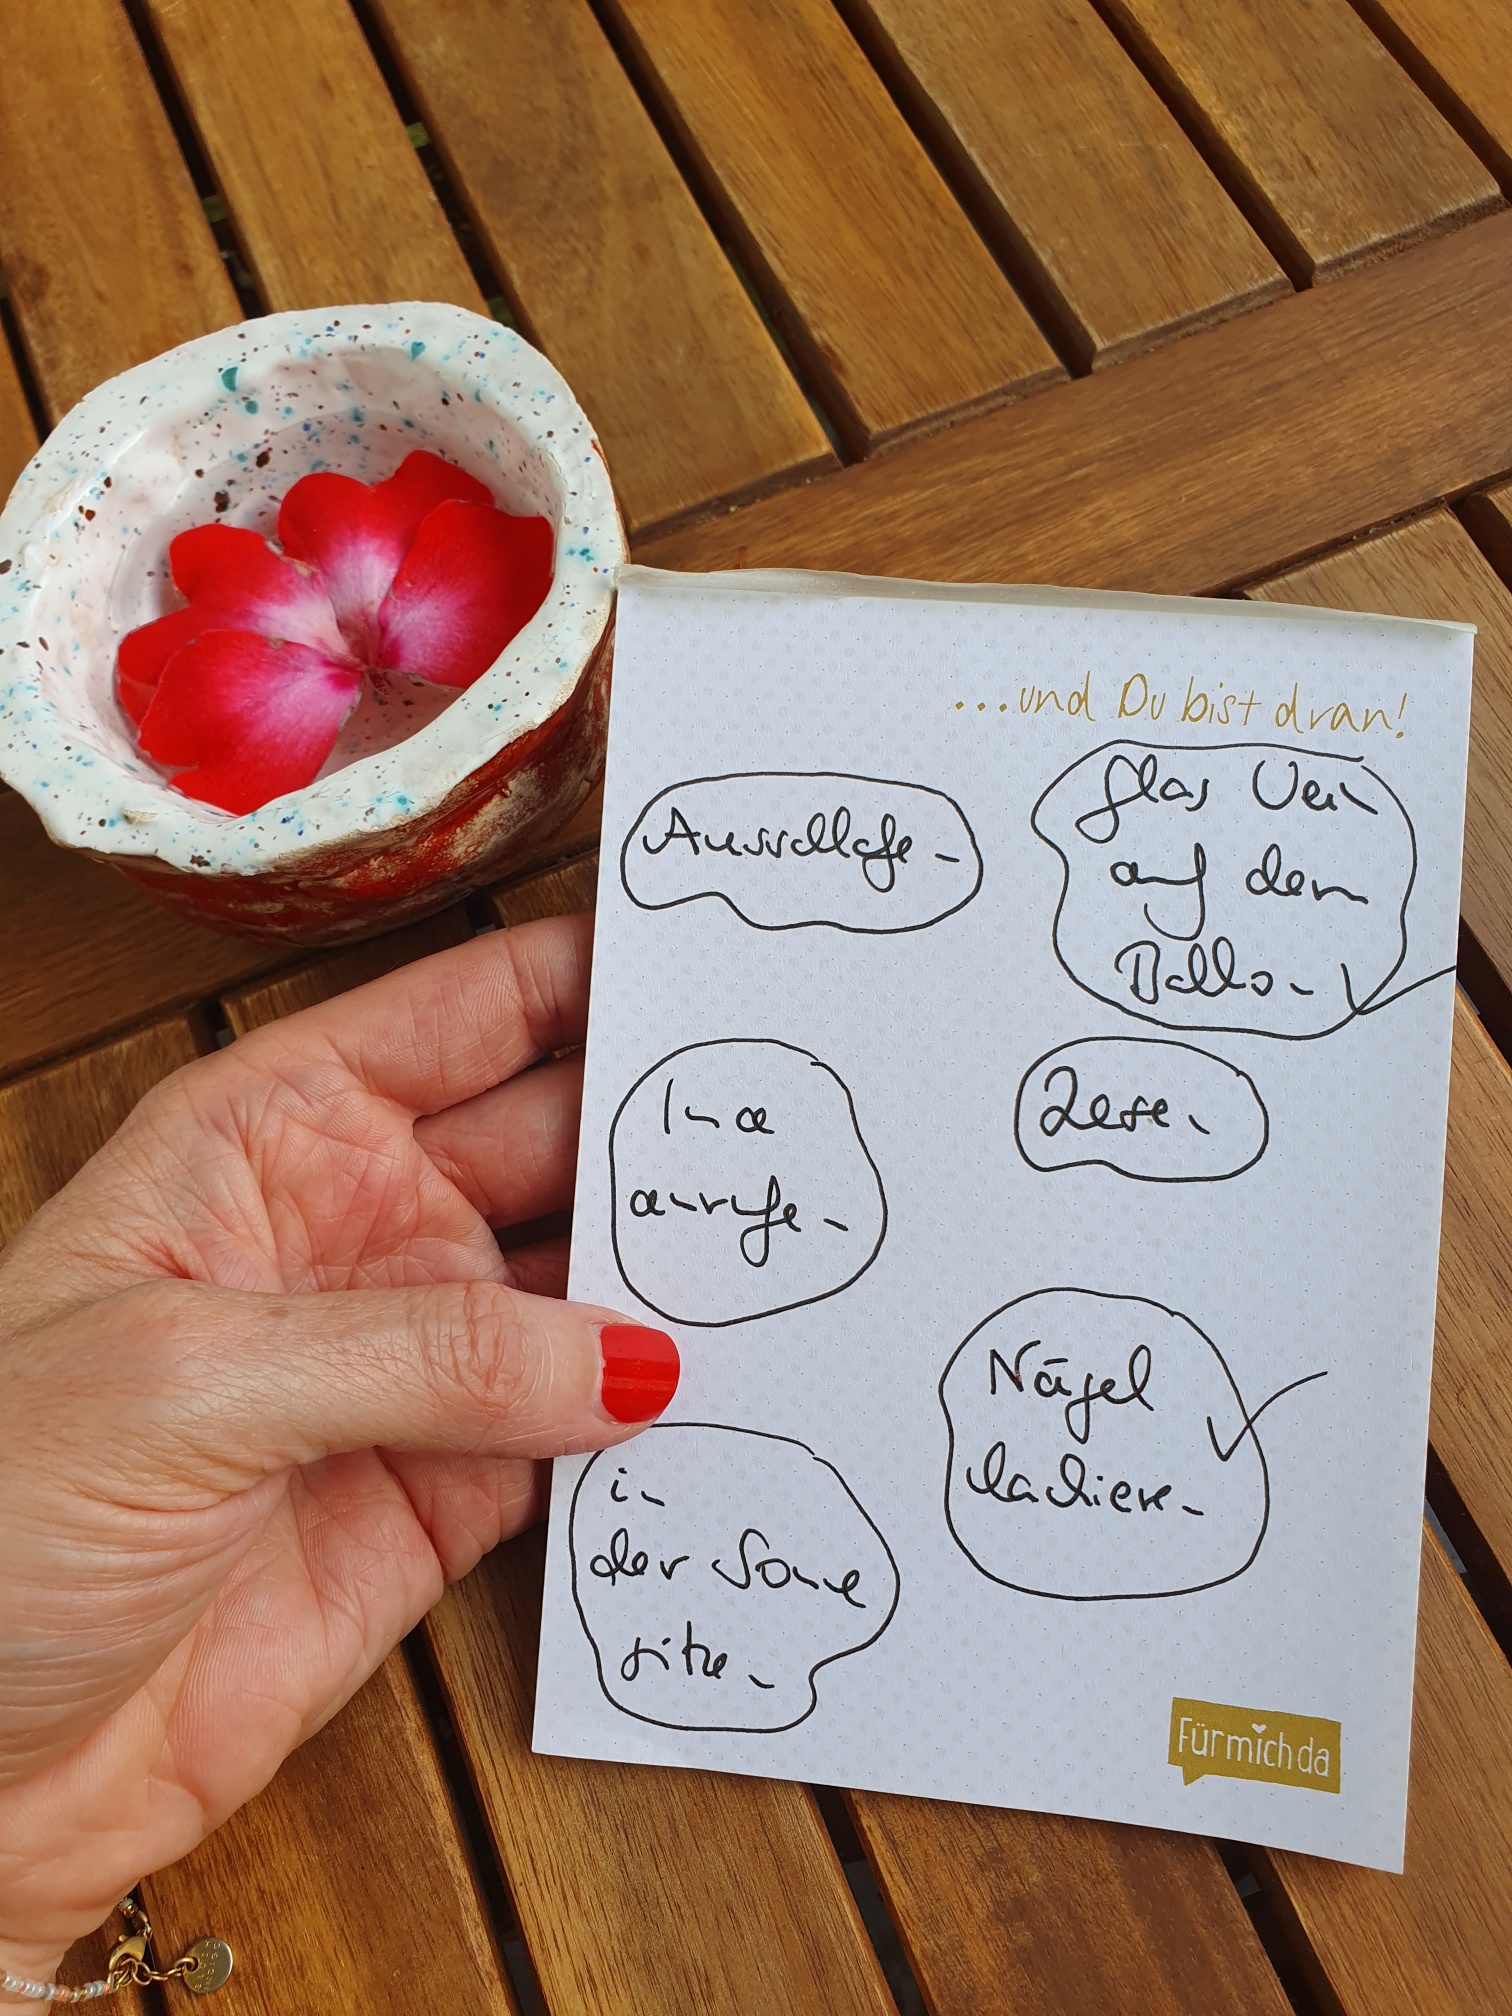 ...und Du bist dran!
Ausschlafen
Glas Wein
auf dem
Balkon
Ina
anrufen
Lesen
Nägel
lackieren
in
der Sonne
sitzen
Für mich da